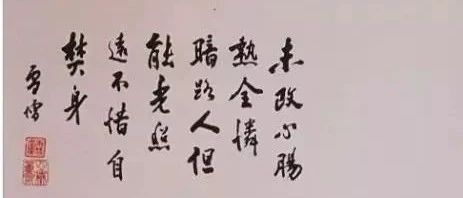 未改心腸
熱全憐
暗路人但
能光照
遠不惜自
焚身
雪濤